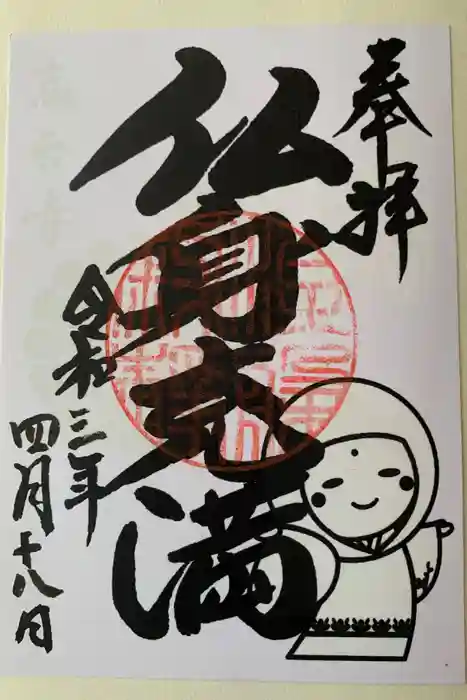 奉拝
仏身充満
令和三年
四月十八日